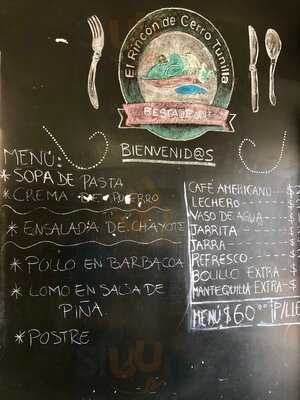 El Rincón de Cerro Tunilla
RESTAURANT
BIENVENID@S
MENÚ:
*SOPA DE PASTA
*CREMA DE PUERRO
*ENSALADA DE CHAYOTE
*POLLO EN BARBACOA
*LOMO EN SALSA DE
PIÑA
*POSTRE
CAFÉ AMERICANO
LECHERO
VASO DE AGUA
JARRITA
JARRA
REFRESCO
BOLILLO EXTRA
MANTEQUILLA EXTRA
MENÚ $60